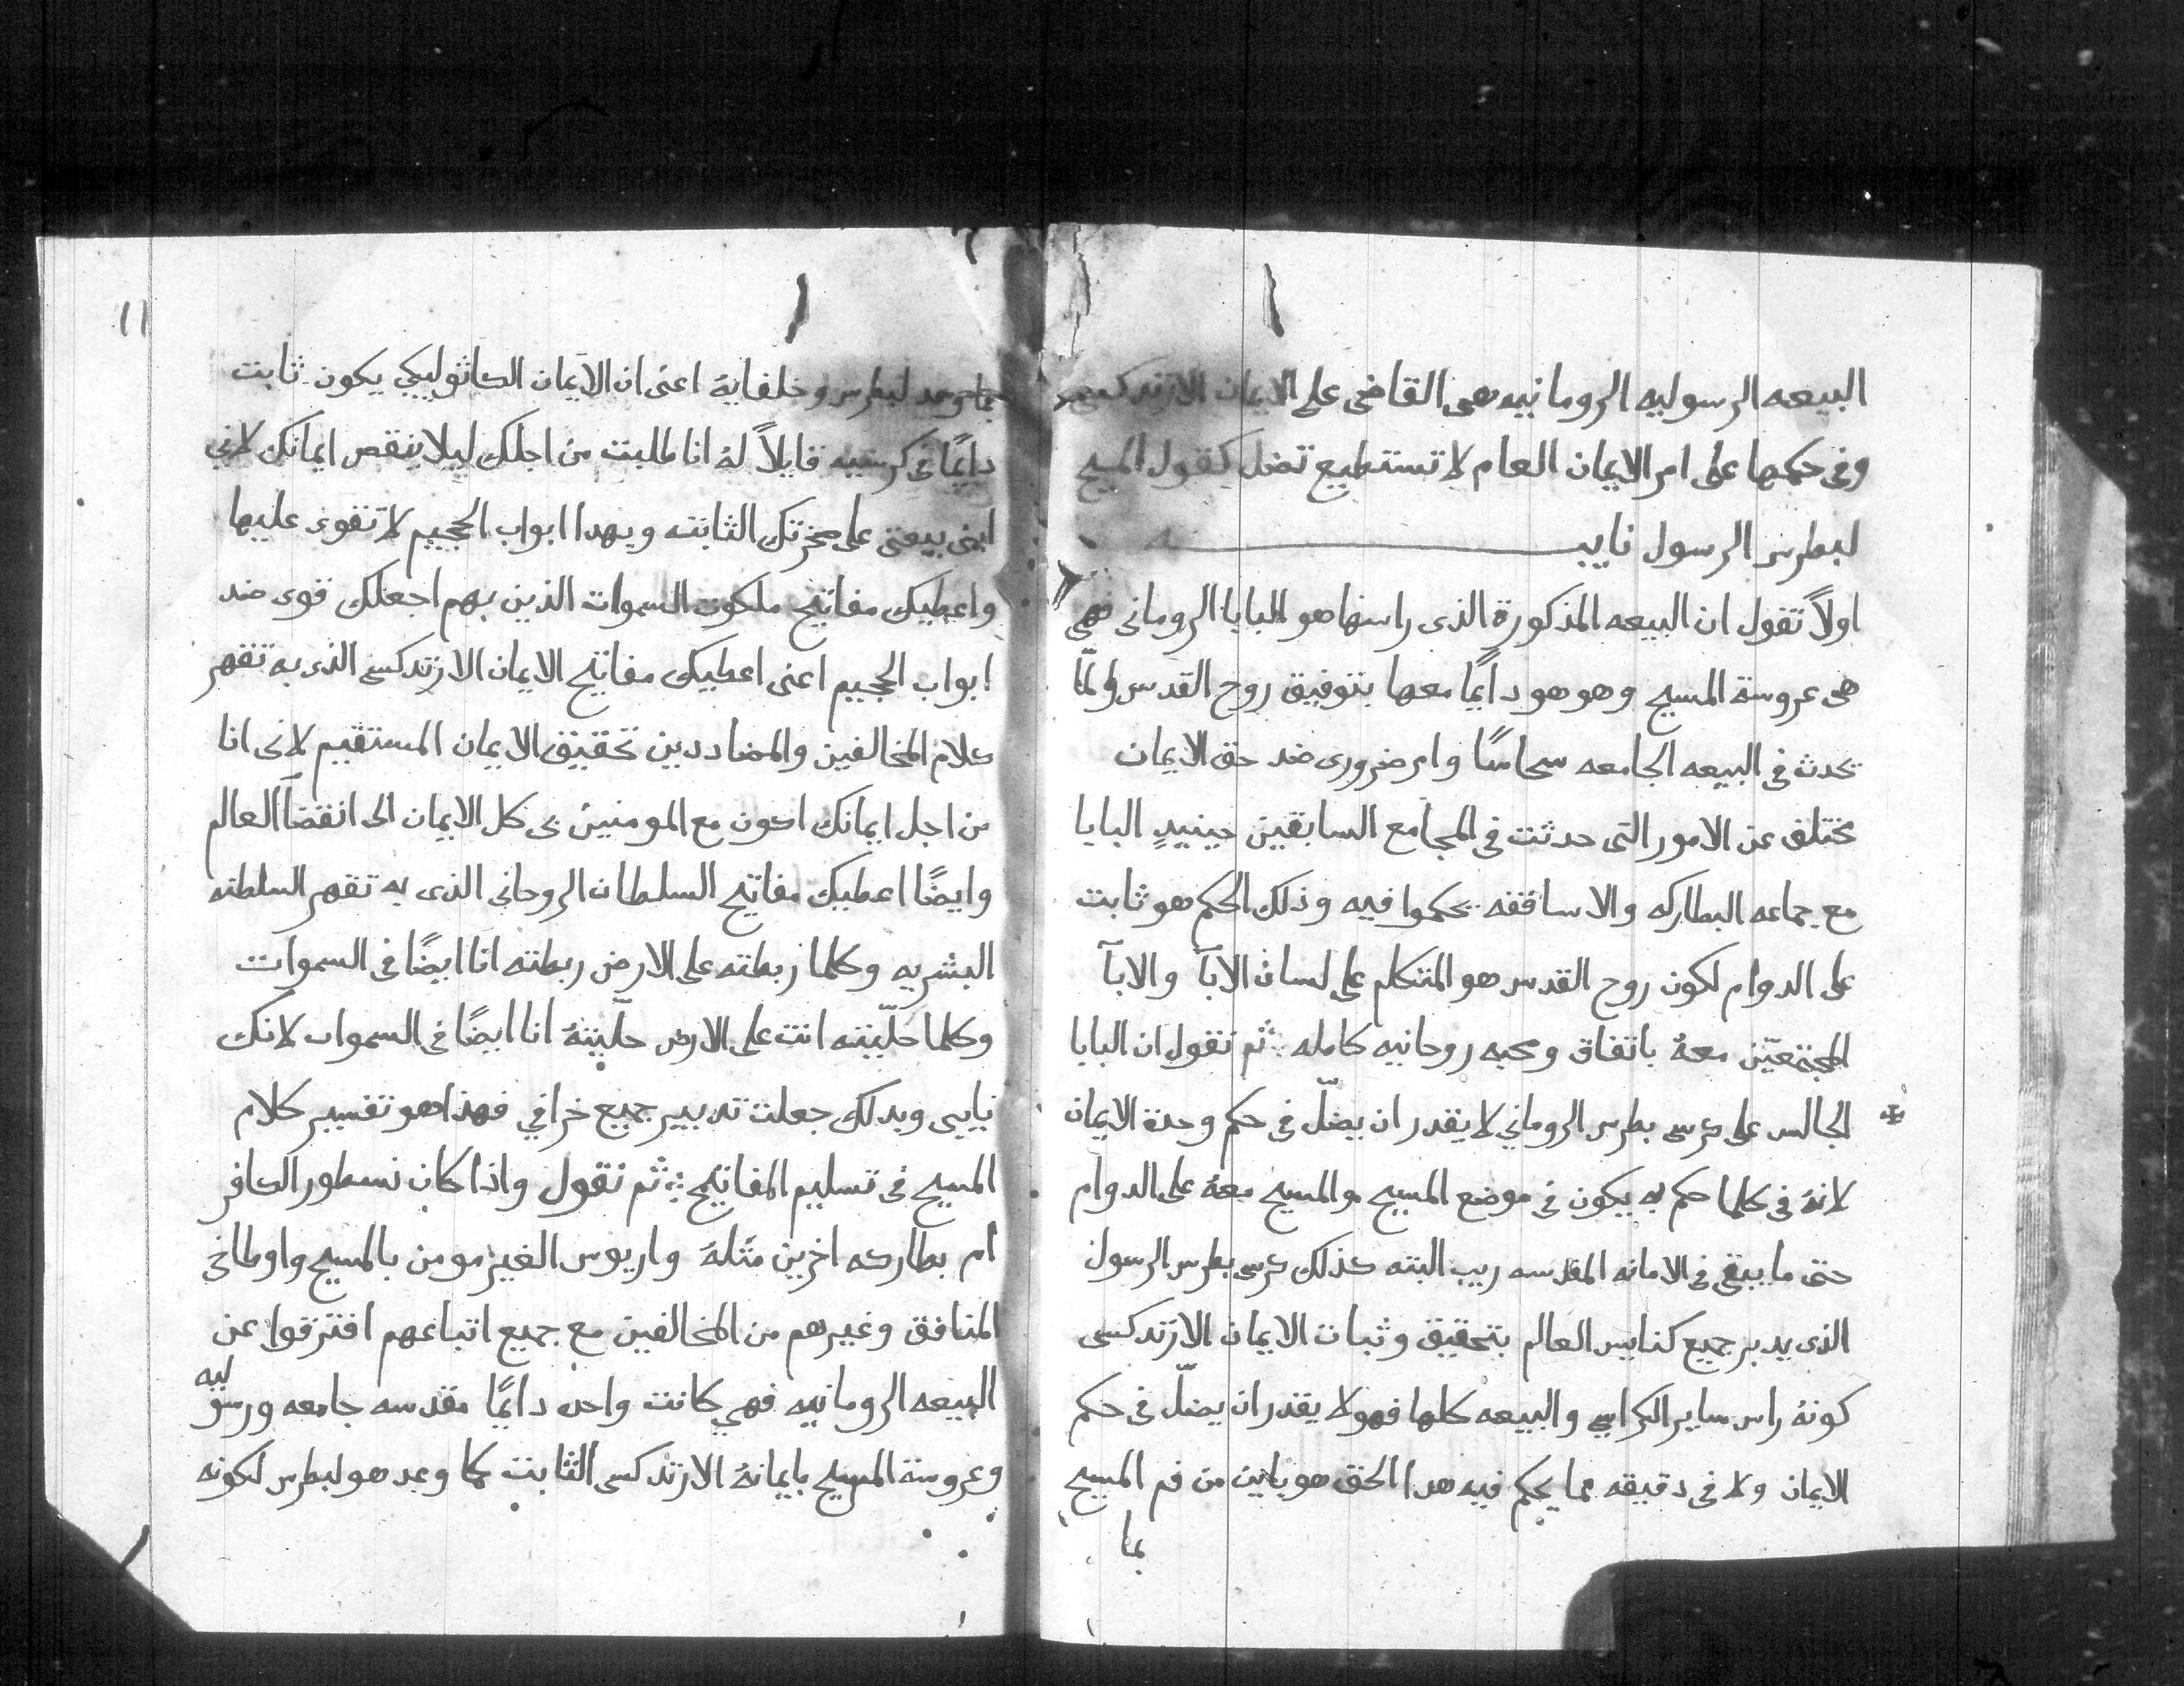 البيعه الرسوليه الرومانيه هى القاضى على الايمان الارتدكسى
وفى حكمها على امر الايمان العام لا تستطيع تضل كقول المسيح
لبطرس الرسول نايبه
اولاً تقول ان البيعه المذكورة الذى راسها هو البابا الرومانى فهى
هى عروسة المسيح وهو هو دايمًا معها بتوفيق روح القدس ولمّا
يحدث فى البيعه الجامعه سحاسًا وامر ضرورى ضد حق الايمان
مختلف عن الامور التى حدثت فى المجامع السابقين حينيدٍ البابا
مع جماعه البطاركه والاساقفه يحكموا فيه وذلك الحكم هو ثابت
على الدوام لكون روح القدس هو المتكلم على لسان الابآ والابآ
المجتمعيّن معهُ باتفاق ومحبه روحانيه كامله ثم تقول ان البابا
الجالس على كرسى بطرس الرومانى لا يقدر ان يضلّ فى حكم وحدة الايمان
لانهُ فى كلما حكم به يكون فى موضع المسيح والمسيح معهُ على الدوام
حتى ما يبقى فى الامانه المقدسه ريب البته كذلك كرسى بطرس الرسول
الذى يدبر جميع كنايس العالم بتحقيق وثبات الايمان الارتدكسى
كونهُ راس ساير الكراسي والبيعه كلها فهو لا يقدر ان يضلّ فى حكم
الايمان ولا فى دقيقه مما يحكم فيه هدا الحق هو باين من فم المسيح
بما
١١
بما وعد لبطرس وخلفايهُ اعنى ان الايمان الكاثوليكي يكون ثابت
دايمًا فى كرسيه قايلاً لهُ انا طلبت من اجلك ليلا ينقص ايمانك لاني
ابنى بيعتى على صخرتك الثابته وبهدا ابواب الجحيم لا تقوى عليها
واعطيك مفاتيح ملكوت السموات الذين بهم اجعلك قوى ضد
ابواب الجحيم اعنى اعطيك مفاتيح الايمان الارتدكسى الذى به تقهر
كلام المخالفين والمضاددين تحقيق الايمان المستقيم لانى انا
من اجل ايمانك اكون مع المومنين فى كل الايمان الى انقضآ العالم
وايضًا اعطيك مفاتيح السلطان الروحانى الذى به تقهر السلطنه
البشريه وكلما ربطته على الارض ربطته انا ايضًا فى السموات
وكلما حلّيته انت على الارض حلّيتهُ انا ايضًا فى السموات لانك
نايبى وبدلك جعلت تدبير جميع خرافي فهذا هو تفسير كلام
المسيح فى تسليم المفاتيح ثم نقول واذا كان نسطور الكافر
ام بطاركه اخرين مثلهُ واريوس الغير مومن بالمسيح واوطاخى
المنافق وغيرهم من المخالفين مع جميع اتباعهم افترقوا عن
البيعه الرومانيه فهي كانت واحده دايمًا مقدسه جامعه ورسوليه
وعروسة المسيح بايمانهُ الارتدكسى الثابت كما وعد هو لبطرس لكونه